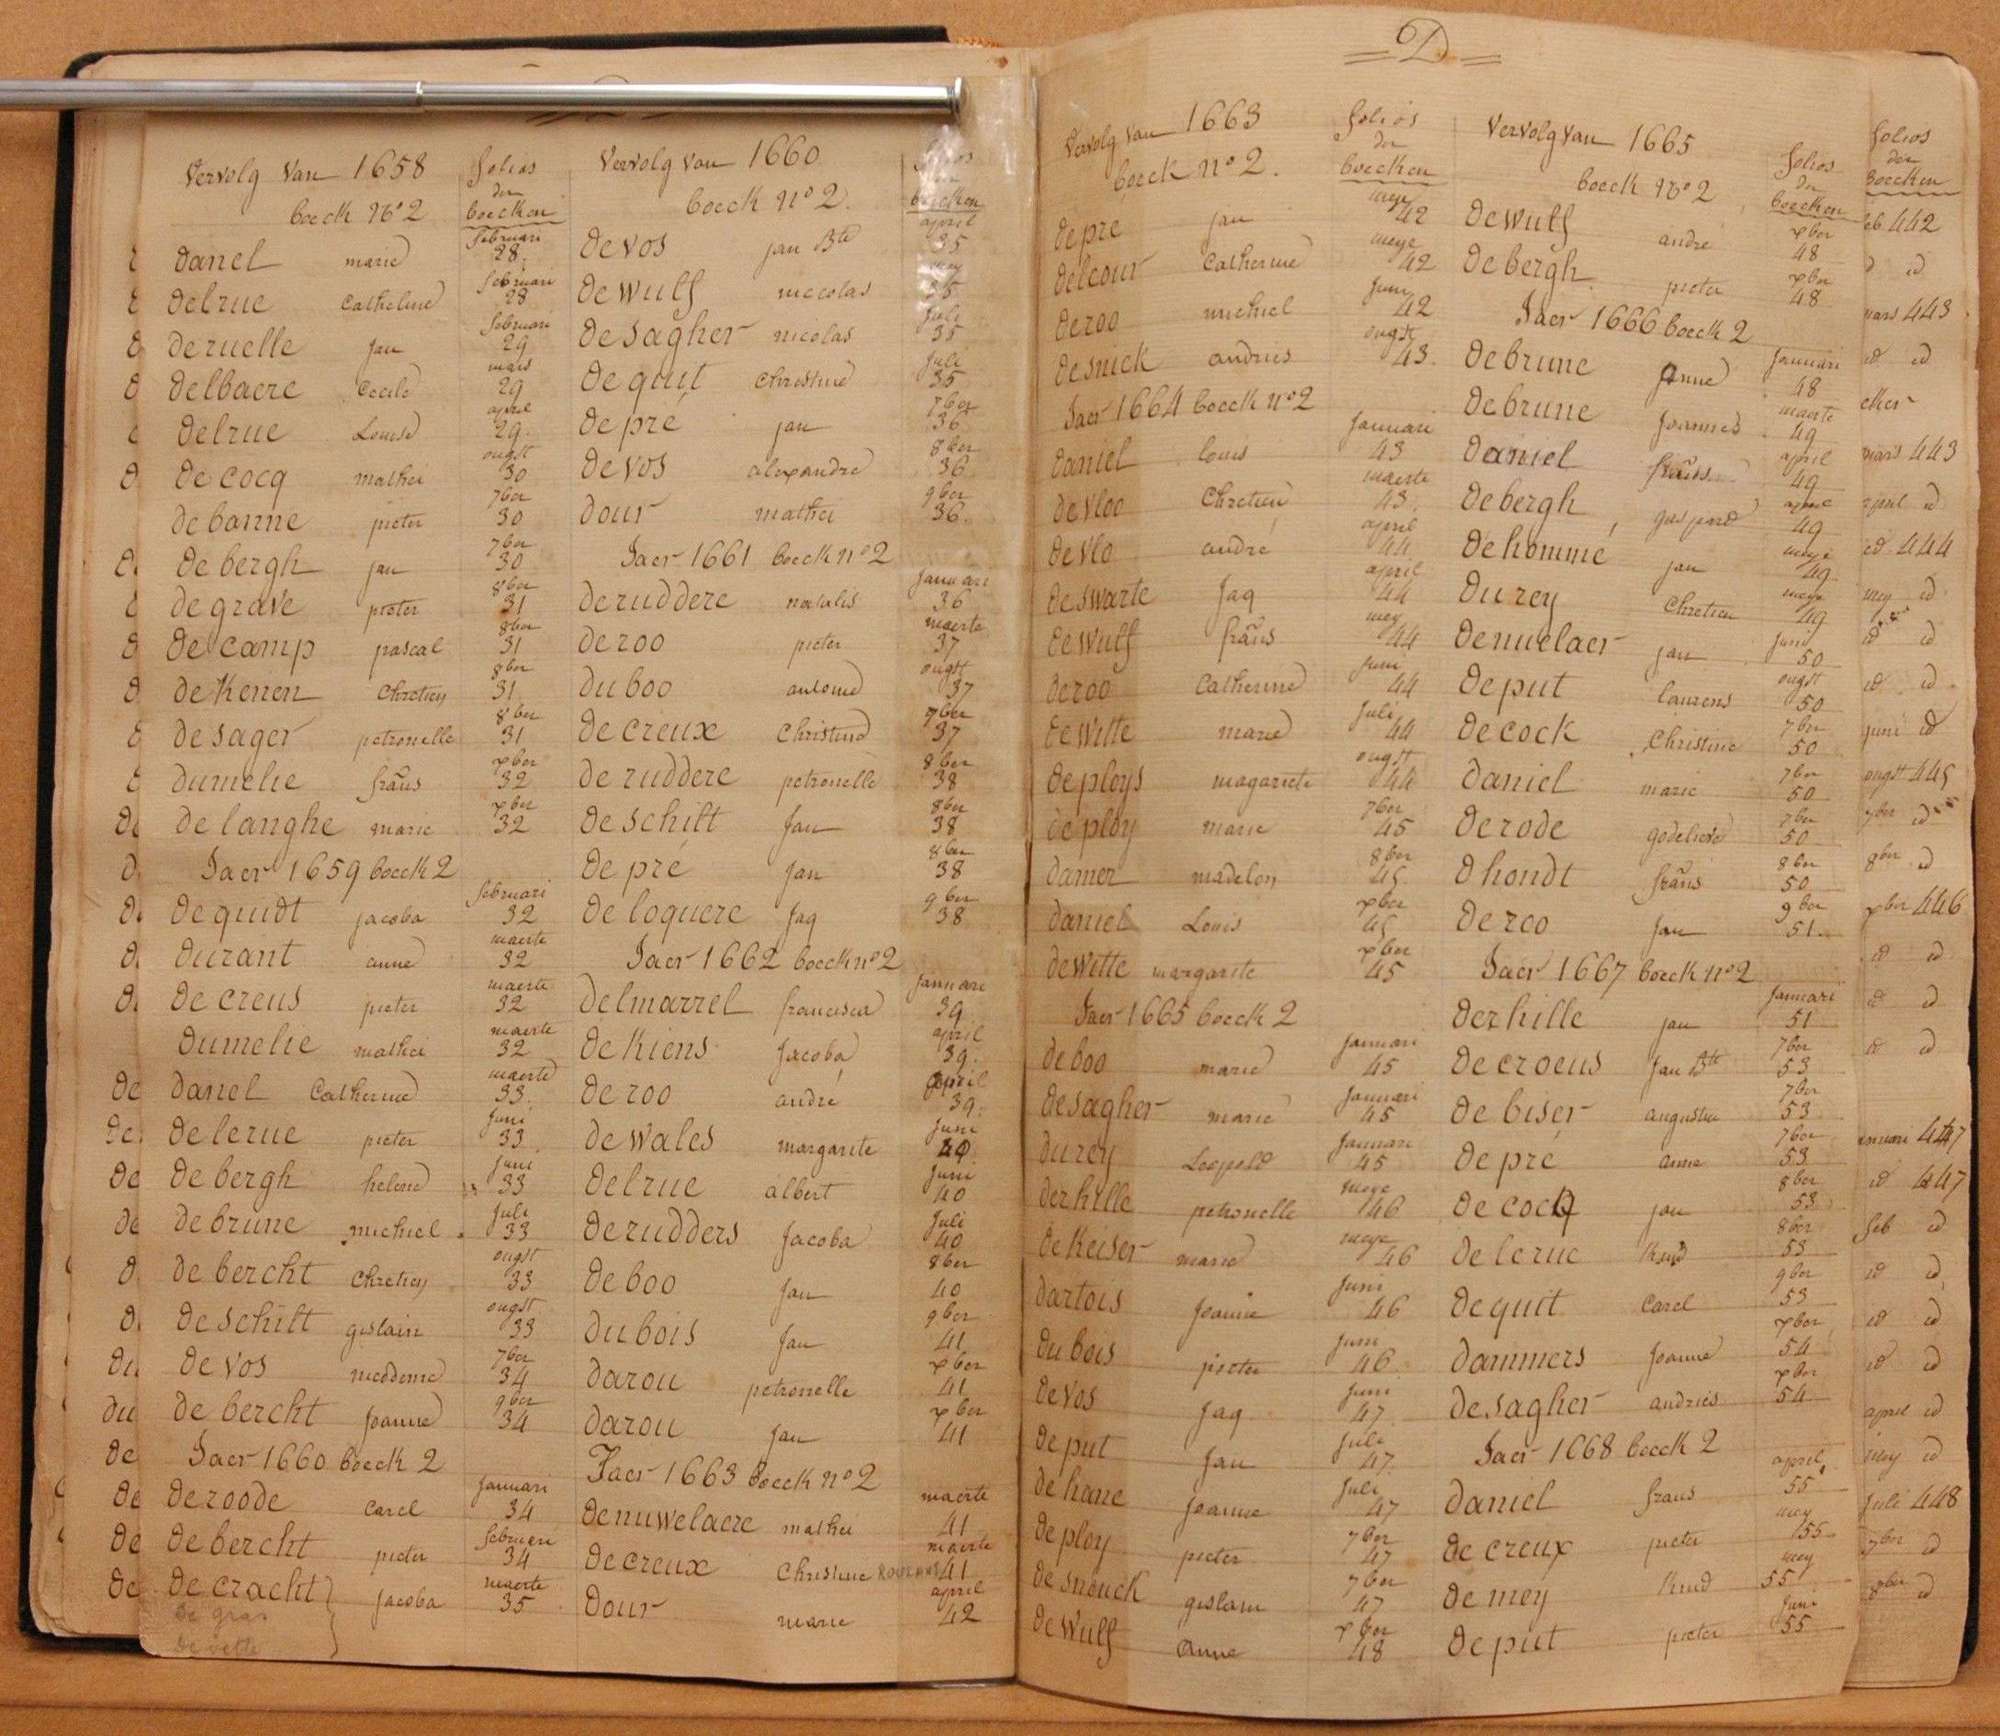 Vervolg Van 1658
boeck No 2
folios der boecken
danel marie februari 28
delrue Catheline februari 28
deruelle Jan februari 29
delbaere Cecile mars 29
delrue Louise april 29
de cocq mathei ougst 30
de banne pieter 7ber 30
de bergh jan 7ber 30
de grave pieter 8ber 31
de camp pascal 8ber 31
de Kenen Chretien 8ber 31
de sager petronelle 8ber 31
dumelie frãns xber 32
de langhe marie xber 32
Jaer 1659 boeck 2
de quidt jacoba februari 32
durant anne maerte 32
de creus pieter maerte 32
dumelie mathei maerte 32
danel Catherine maerte 33
de lerue pieter Juni 33
de bergh helene Juni 33
de brune michiel Juli 33
de bercht Chretien ougst 33
de schilt gislain ougst 33
de vos 7ber 34
de bercht Joanne 9ber 34
Jaer 1660 boeck 2
de roode Carel Januari 34
de bercht pieter februari 34
de cracht Jacoba maerte 35
de gras
de vette
Vervolg Van 1660
boeck No 2.
folios der boecken
de vos jan Bte april 35
de wulf niccolas mey 35
de sagher nicolas Juli 35
de quit Christine Juli 35
de pré jan 7ber 36
de vos alexandre 8ber 36
dour mathei 9ber 36
Jaer 1661 boeck no 2
de ruddere natalis Januari 36
de roo pieter maerte 37
du boo antoine ougst 37
de creux Christine 7ber 37
de ruddere petronelle 8ber 38
de schilt Jan 8ber 38
de pré Jan 8ber 38
de loquere Jaq 9ber 38
Jaer 1662 boeck no 2
delmarrel francisca Januari 39
de Kiens Jacoba april 39
de roo andré april 39
de wales margarite Juni 40
delrue albert Juni 40
de rudders Jacoba Juli 40
de boo Jan 8ber 40
du bois Jan 9ber 41
darou petronelle xber 41
darou Jan xber 41
Jaer 1663 boeck no 2
de nuwelaere mathei maerte 41
de creux Christine maerte 41
dour marie april 42
D
Vervolg Van 1663
boeck No 2.
folios der boecken
de pre jan meye 42
delcour Catherine meye 42
de roo michiel Juni 42
de snick andries ougst 43
Jaer 1664 boeck no 2
daniel louis Januari 43
de vloo Chretien maerte 43
de vlo andré april 44
de swarte Jaq april 44
de wulf frãns mey 44
de roo Catherine Juni 44
de witte marie Juli 44
de ploys magariete ougst 44
de ploy marie 7ber 45
damer madelon 8ber 45
daniel Louis xber 45
de witte margarite xber 45
Jaer 1665 boeck 2
de boo marie Januari 45
de sagher marie Januari 45
du rey Leopold Januari 45
derhille petronelle meye 46
de Keiser marie meye 46
dartois Joanne Juni 46
du bois pieter Juni 46
de vos Jaq Juni 47
de put Jan Juli 47
de hane Joanne Juli 47
de ploy pieter 7ber 47
de snouck gislain 7ber 47
de wulf anne xber 48
Vervolg Van 1665
boeck No 2
folios der boecken
de wulf andré xber 48
de bergh pieter xber 48
Jaer 1666 boeck 2
de brune Januari 48
de brune Joannes maerte 49
daniel april 49
de bergh gaspard april 49
de hommé jan meye 49
du rey Chretien meye 49
de nuelaer jan Juni 50
de put laurens ougst 50
de cock Christine 7ber 50
daniel marie 7ber 50
de rode godelieve 7ber 50
d hondt frãns 8ber 50
de roo Jan 9ber 51
Jaer 1667 boeck no 2
derhille jan Januari 51
de croeus Jan Bte 7ber 53
de biser augustin 7ber 53
de pré anne 7ber 53
de cocq jan 8ber 53
de lerue Kind 8ber 53
de quit Carel 9ber 53
dammers Joanne xber 54
de sagher andries xber 54
Jaer 1668 boeck 2
daniel frans april 55
de creux pieter mey 55
de mey Kind mey 55
de put pieter Juni 55
folios der boecken
feb 442
id id
mars 443
id id
mars 443
april id
id 444
mey id
id id
id id
juni id
ougst 445
7ber id
8ber id
xber 446
id id
id id
id id
Januari 447
id 447
feb id
id id
id id
id id
april id
mey id
Juli 448
7ber id
8ber id